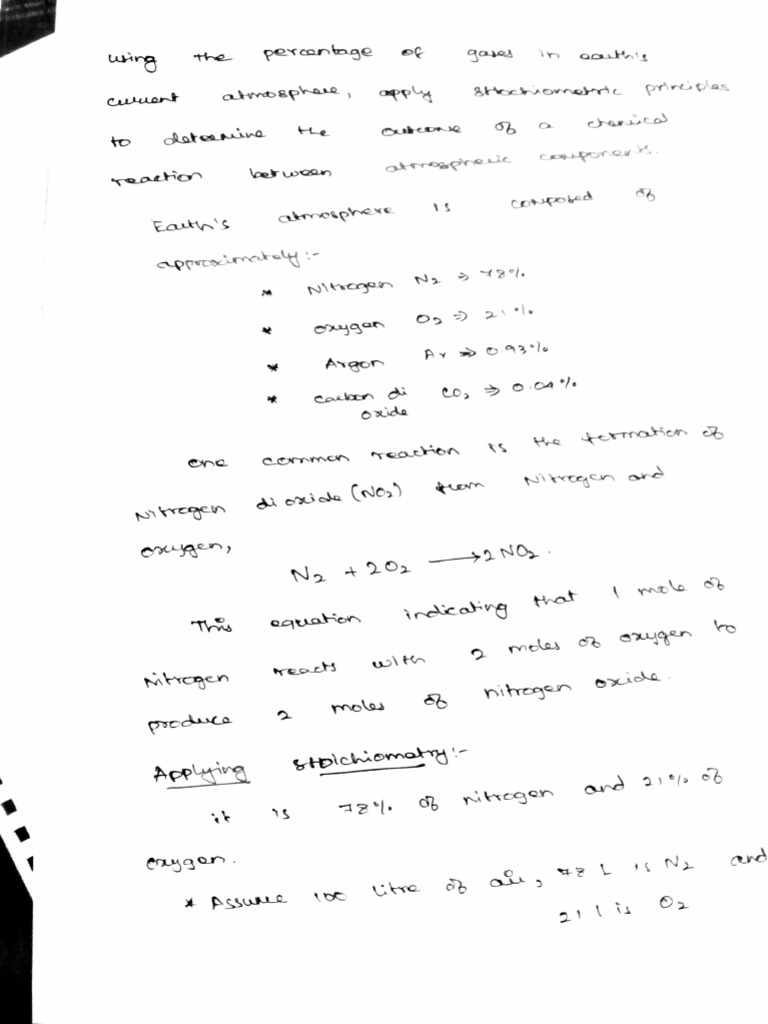 using the percentage of gases in earth's
current atmosphere, apply stiochiometric principles
to determine the outcome of a chemical
reaction between atmospheric components.
Earth's atmosphere is composed of
approximately:-
* Nitrogen N2 ⇒ 78%
* oxygen O2 ⇒ 21%
* Argon Ar ⇒ 0.93%
* carbon di CO2 ⇒ 0.04%
oxide
one common reaction is the formation of
Nitrogen di oxide (NO2) from Nitrogen and
oxygen,
N2 + 2O2 ⟶ 2NO2.
This equation indicating that 1 mole of
Nitrogen reacts with 2 moles of oxygen to
produce 2 moles of nitrogen oxide.
Applying stoichiomatry:-
it is 78% of nitrogen and 21% of
oxygen.
* Assume 100 litre of air, 78 L is N2 and
21 l is O2